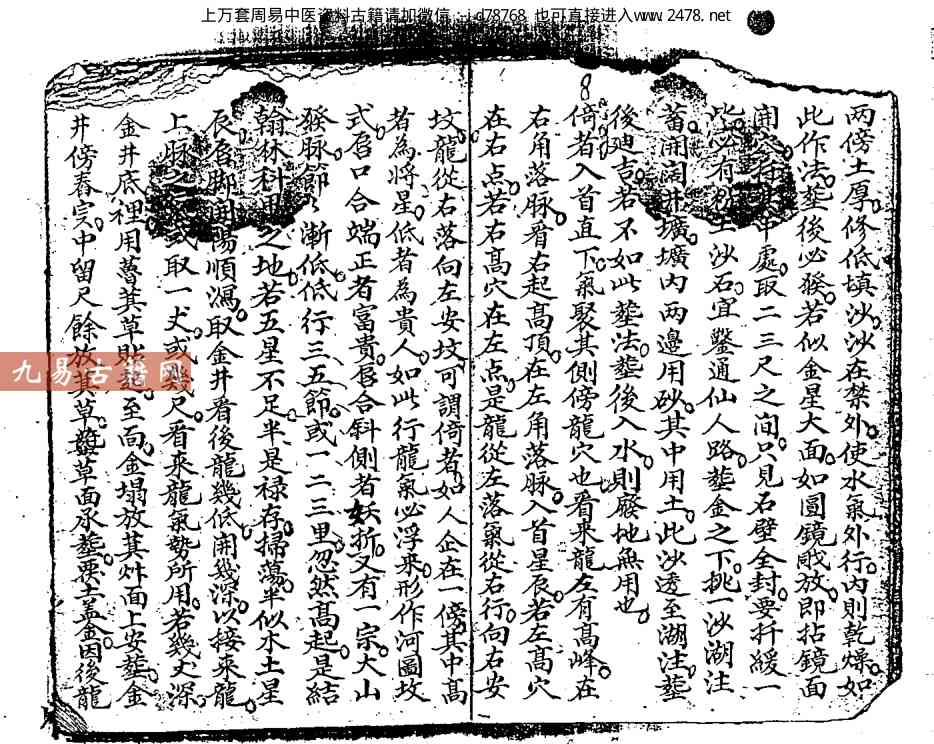 上万套周易中医资料古籍请加微信：jd78768 也可直接进入www.2478.net
8
兩傍土厚修低填沙沙在禁外使水氣外行內則乾燥如
此作法塟後必發若似金星大面如圖鏡戙放即拈鏡面
開處取二三尺之间只見石壁全封要扦緩一
必有土沙石宜鑿通仙人路塟金之下挑一沙湖注
蓄開濶井壙壙內两邊用砂其中用土此沙透至湖注塟
後迪吉若不如此塟法塟後入水則廢地無用也
倚者入首直下氣聚其側傍龍穴也看来龍左有高峰在
右角落脉看右起高頂在左角落脉入首星辰若左高穴
在右点若右高穴在左点是龍從左落氣從右行向右安
坟龍從右落向左安坟可謂倚者如人企在一傍其中高
者為將星低者為貴人如此行龍氣必浮来形作河圖坟
式唇口合端正者富貴唇合斜側者妖折又有一宗大山
發脉節々漸低低行三五節或一二三里忽然高起是結
翰林科甲之地若五星不足半是禄存掃蕩半似木土星
辰唇脚開陽順瀉取金井看後龍幾低開幾深以接来龍
上脉之或取一丈或幾尺看来龍氣勢所用若幾丈深
金井底裡用蓍萁草至面金塌放萁炸面上安塟金
井傍舂实中留尺餘放萁草盤草面承塟要土盖金因後龍
九易古籍网